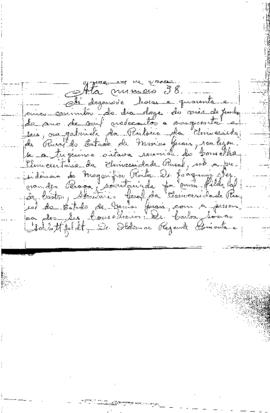 Ata número 38.
Às dezenove horas e quarenta e
cinco minutos do dia doze do mês de junho
do ano de mil novecentos e cinquenta e
seis, no gabinete da Reitoria da Universidade
Rural do Estado de Minas Gerais, realizou-
se a trigésima oitava reunião do Conselho
Universitário da Universidade Rural, sob a pre-
sidência do Magnífico Reitor Dr. Joaquim Fer-
nandes Braga, secretariada por mim,
de Castro, Secretário Geral da Universidade Ru-
ral do Estado de Minas Gerais, com a presen-
ça dos srs. Conselheiros: Dr.
Dr. Edelmar Rezende